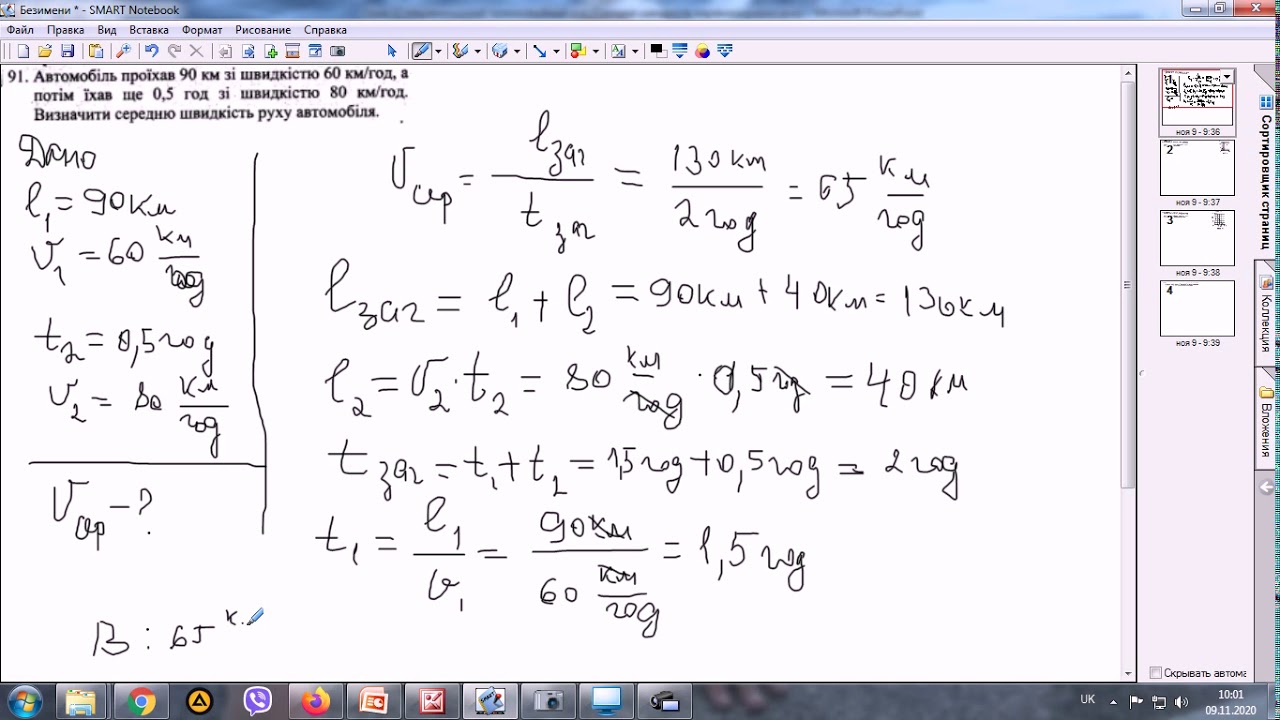 Безимени * - SMART Notebook
Файл Правка Вид Вставка Формат Рисование Справка
91. Автомобіль проїхав 90 км зі швидкістю 60 км/год, а
потім їхав ще 0,5 год зі швидкістю 80 км/год.
Визначити середню швидкість руху автомобіля.
Дано
l₁ = 90 км
v₁ = 60 км/год
t₂ = 0,5 год
v₂ = 80 км/год
vсер - ?
vсер = lзаг/tзаг = 130 км/2 год = 65 км/год
lзаг = l₁ + l₂ = 90 км + 40 км = 130 км
l₂ = v₂ · t₂ = 80 км/год · 0,5 год = 40 км
tзаг = t₁ + t₂ = 1,5 год + 0,5 год = 2 год
t₁ = l₁/v₁ = 90 км/60 км/год = 1,5 год
В : 65 к
ноя 9 - 9:36
2
ноя 9 - 9:37
3
ноя 9 - 9:38
4
ноя 9 - 9:39
Сортировщик страниц
Коллекция
Вложения
Скрывать автома
UK
10:01
09.11.2020